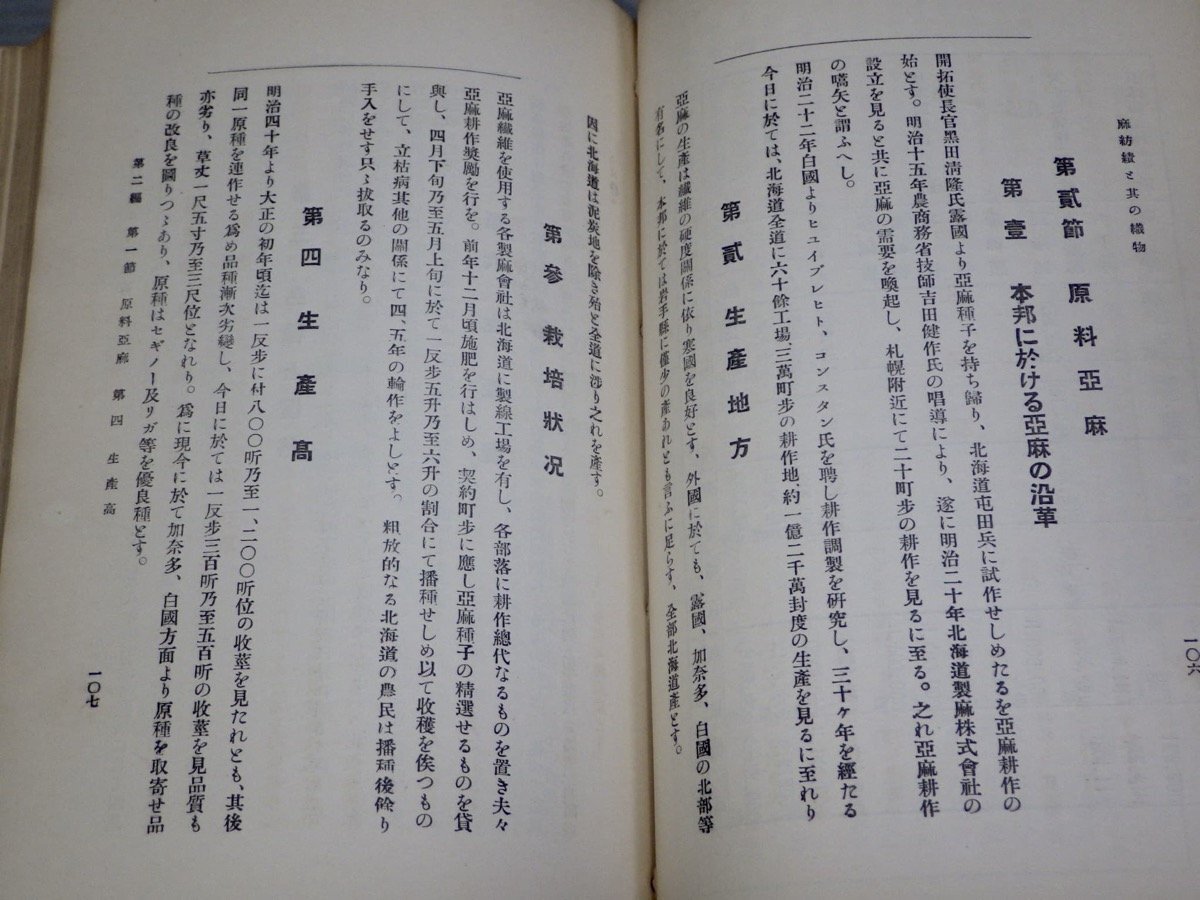 麻紡績と其の織物
第貳節　原料亞麻
第壹　本邦に於ける亞麻の沿革
開拓使長官黑田淸隆氏露國より亞麻種子を持ち歸り、北海道屯田兵に試作せしめたるを亞麻耕作の
始とす。明治十五年農商務省技師吉田健作氏の唱導により、遂に明治二十年北海道製麻株式會社の
設立を見ると共に亞麻の需要を喚起し、札幌附近にて二十町步の耕作を見るに至る。之れ亞麻耕作
の嚆矢と謂ふへし。
明治二十二年白國よりヒユイブレヒト、コンスタン氏を聘し耕作調製を硏究し、三十ケ年を經たる
今日に於ては、北海道全道に六十餘工場、三萬町步の耕作地、約一億二千萬封度の生產を見るに至れり
第貳　生產地方
亞麻の生產は纖維の硬度關係に依り寒國を良好とす、外國に於ても、露國、加奈多、白國の北部等
有名にして、本邦に於ては岩手縣に僅少の產あれとも言ふに足らす、全部北海道產とす。
一〇六
因に北海道は泥炭地を除き殆と全道に涉り之れを產す。
第參　栽培狀況
亞麻纖維を使用する各製麻會社は北海道に製線工場を有し、各部落に耕作總代なるものを置き夫々
亞麻耕作奬勵を行を。前年十二月頃施肥を行はしめ、契約町步に應し亞麻種子の精選せるものを貸
與し、四月下旬乃至五月上旬に於て一反步五升乃至六升の割合にて播種せしめ以て收穫を俟つもの
にして、立枯病其他の關係にて四、五年の輪作をよしとす。粗放的なる北海道の農民は播種後餘り
手入をせす只々拔取るのみなり。
第四　生產高
明治四十年より大正の初年頃迄は一反步に付八〇〇听乃至一、二〇〇听位の收莖を見たれとも、其後
同一原種を連作せる爲め品種漸次劣變し、今日に於ては一反步三百听乃至五百听の收莖を見品質も
亦劣り、草丈一尺五寸乃至三尺位となれり。爲に現今に於て加奈多、白國方面より原種を取寄せ品
種の改良を圖りつゝあり、原種はセギノー及リガ等を優良種とす。
第二編　第一節　原料亞麻　第四　生產高
一〇七